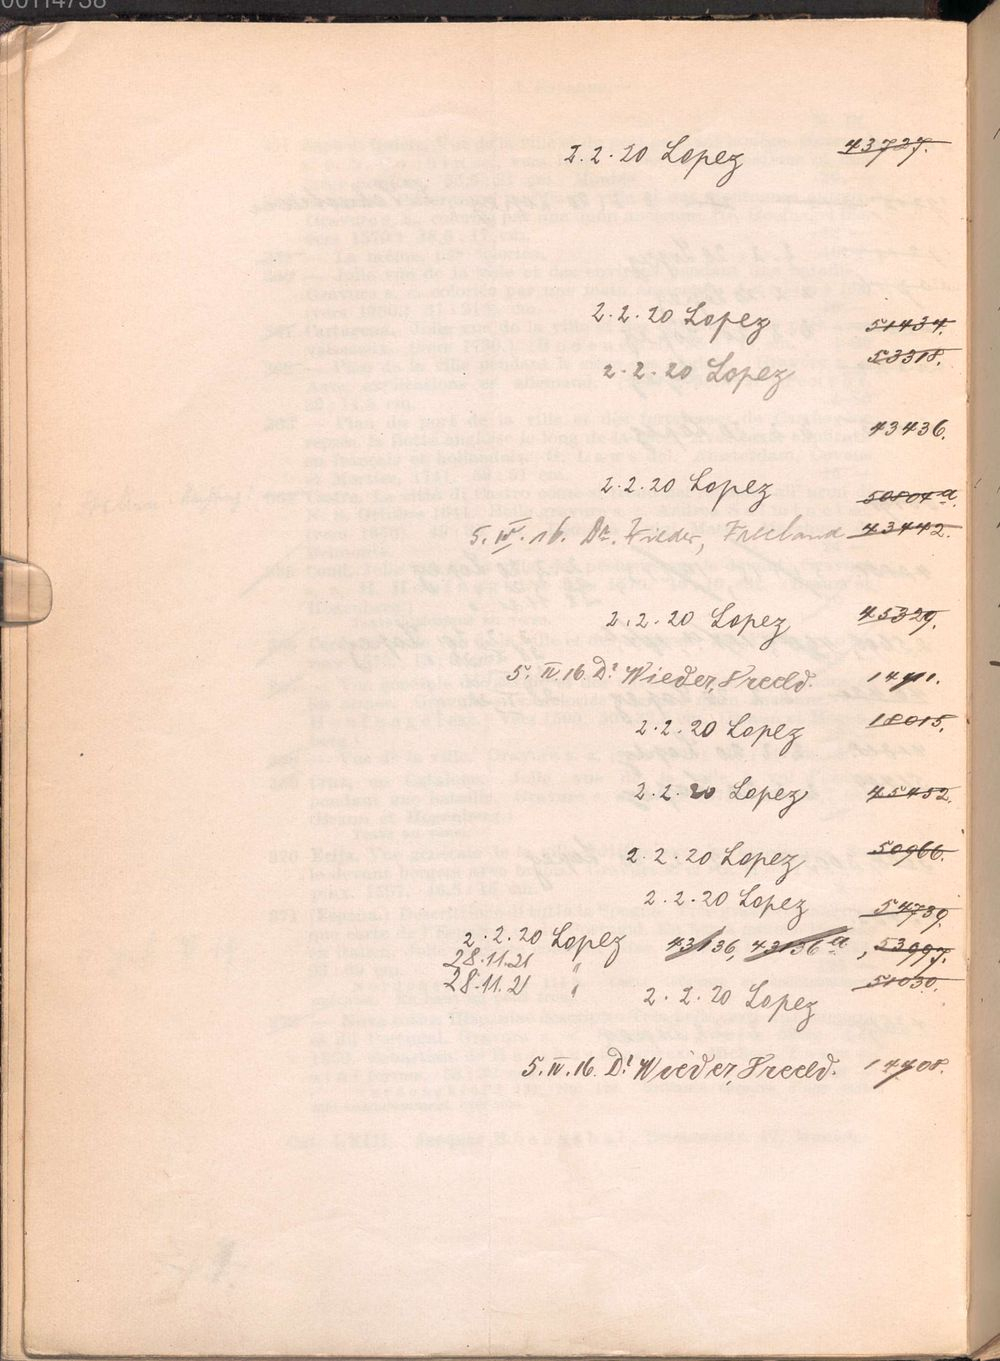 00114738
2.2.20 Lopez 43727.
2.2.20 Lopez 51434.
53318.
2.2.20 Lopez
43436.
2.2.20 Lopez 50804a.
5.IV.16. Dr. Wieder, 43442.
2.2.20 Lopez 45329.
5.IV.16. Dr. Wieder, Freeld. 14911.
2.2.20 Lopez 18015.
2.2.20 Lopez 45452.
2.2.20 Lopez 50966.
2.2.20 Lopez 54789.
2.2.20 Lopez 43136, 43136a, 53997.
28.11.21 "
28.11.21 " 51030.
2.2.20 Lopez
5.IV.16. Dr. Wieder, Freeld. 14908.